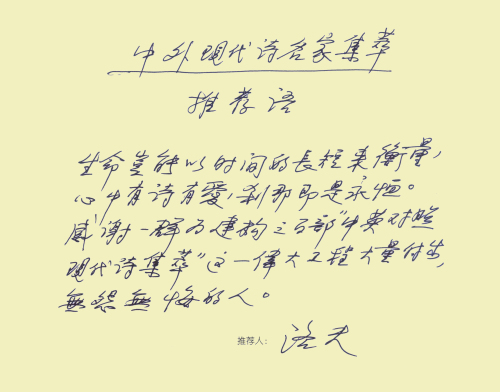 中外现代诗名家集萃
推荐语
生命岂能以时间的長短来衡量，
心中有诗有愛，刹那即是永恒。
感谢一群为建构这部“中英对照
现代诗集萃”这一偉大工程大量付出，
無怨無悔的人。
推荐人：洛夫